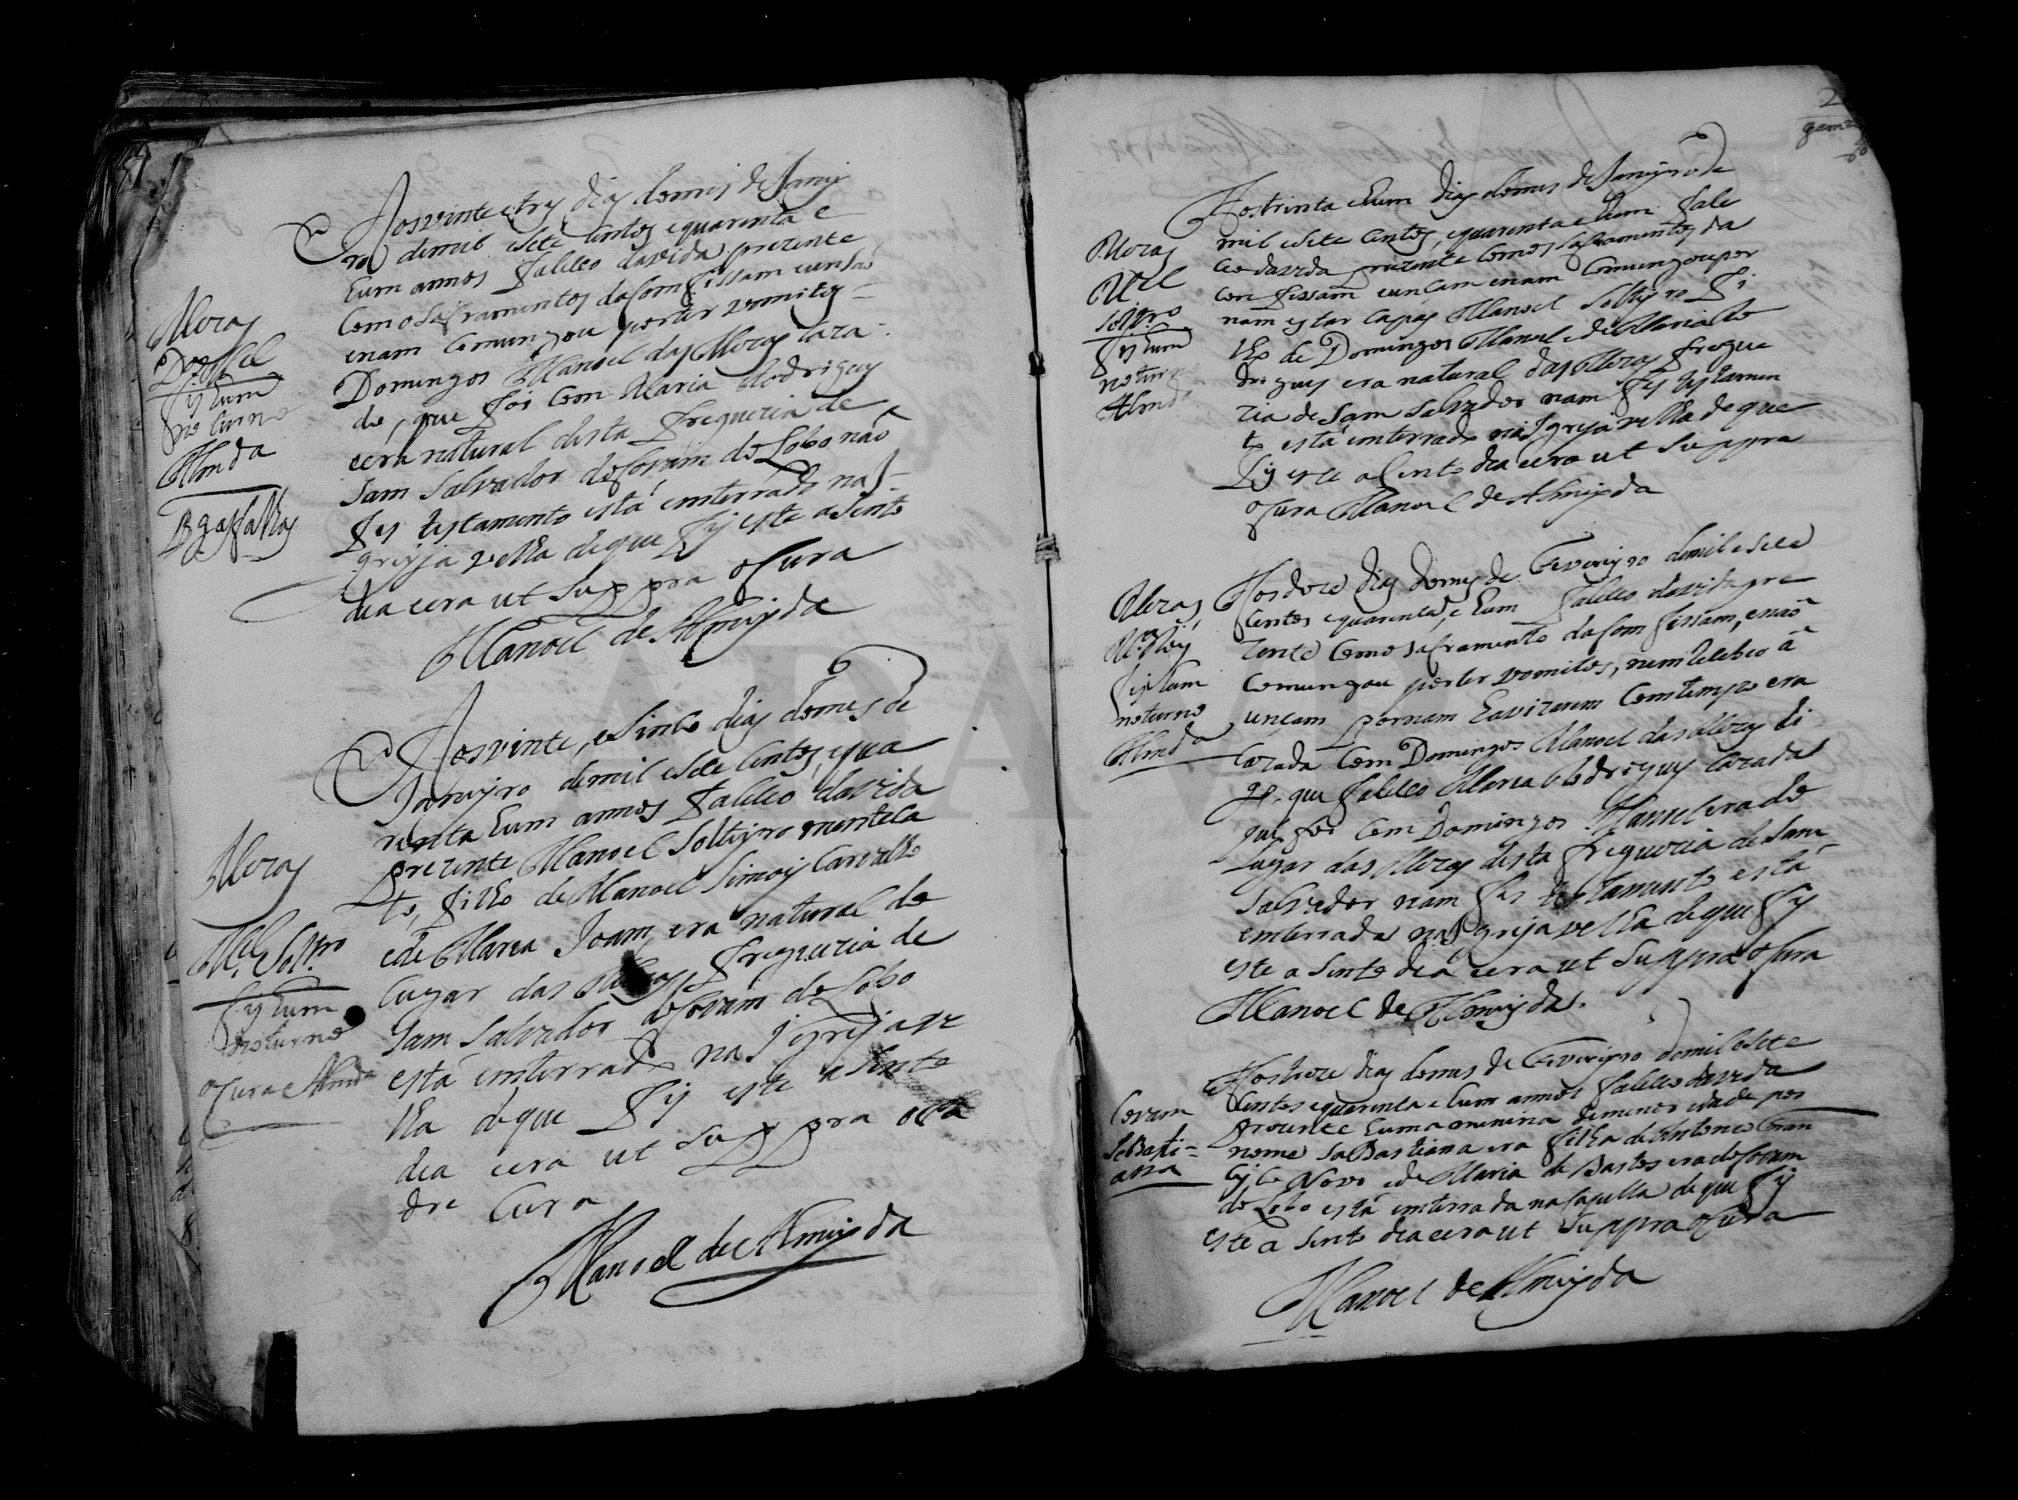 Aos vinte e trez dias do mes de Janey
ro de mil e sete centos e quarenta e
hum annos faleceo da vida prezente
com o Sacramentos da Confissam e unsaõ
e nam comungou por ter vomitos
Domingos Manoel das Meras caza
do, que foi com Maria Rodriguez
e era natural desta freguezia de
Sam Salvador de Covam do Lobo não
fez testamento está emterrado na I
greyja velha de que fiz este asento
dia e era ut suppra o Cura
Manoel de Almeyda
Meras
Dos Mel
fes hum
noturno
Almda
Aos vinte, e sinco dias do mes de
Janeyro de mil e sete centos, e qua
renta hum annos faleceo da vida
prezente Manoel Solteyro menteca
to, filho de Manoel Simoiz Carvalho
e de Maria Joam, era natural do
Lugar das Meras freguezia de
Sam Salvador de Covam do Lobo
está emterrado na Igreja ve
lha de que fiz este asento
dia e era ut suppra o Pa
dre Cura
Manoel de Almeyda
Meras
Mel Soltro
fes hum
noturno
o Cura Almda
Aos trinta e hum dias do mes de Janeyro de
mil e sete centos, e quarenta e hum fale
ceo da vida prezente com os Sacramentos da
Confissam e unçam e nam comungou por
nam estar capas Manoel Solteyro fi
lho de Domingos Manoel e de Maria Ro
driguez era natural das Meras fregue
zia de Sam Salvador nam fez testamen
to está emterrado na Igreja velha de que
fiz este asento dia e era ut Suppra
o Cura Manoel de Almeyda
Meras
Mel
soltro
fes hum
noturno
Almda
Aos doze dias do mes de Fevereyro de mil e sete
centos e quarenta, e hum faleceo da vida pre
zente com o Sacramento da Confissam, e não
comungou por ter vomitos, nem recebeo a
unçam por nam havizarem com tempo era
cazada com Domingos Manoel das Meras di
go que faleceo Maria Rodriguez cazada
que foi com Domingos Manoel era do
Lugar das Meras desta freguezia de Sam
Salvador nam fes testamento está
emterrada na Igreja velha de que fiz
este asento dia e era ut Suppra o Cura
Manoel de Almeyda.
Meras
fes hum
noturno
Almda
Aos treze dias do mes de Fevereyro de mil e sete
centos e quarenta e hum annos faleceo da vida
prezente huma menina de menor idade por
nome Sabastiana era filha de Antonio
Novo e de Maria de Bastos era de Covam
do Lobo está emterrada na Capella de que fiz
este asento dia e era ut Suppra o Cura
Manoel de Almeyda
Covam
Sebasti-
ana